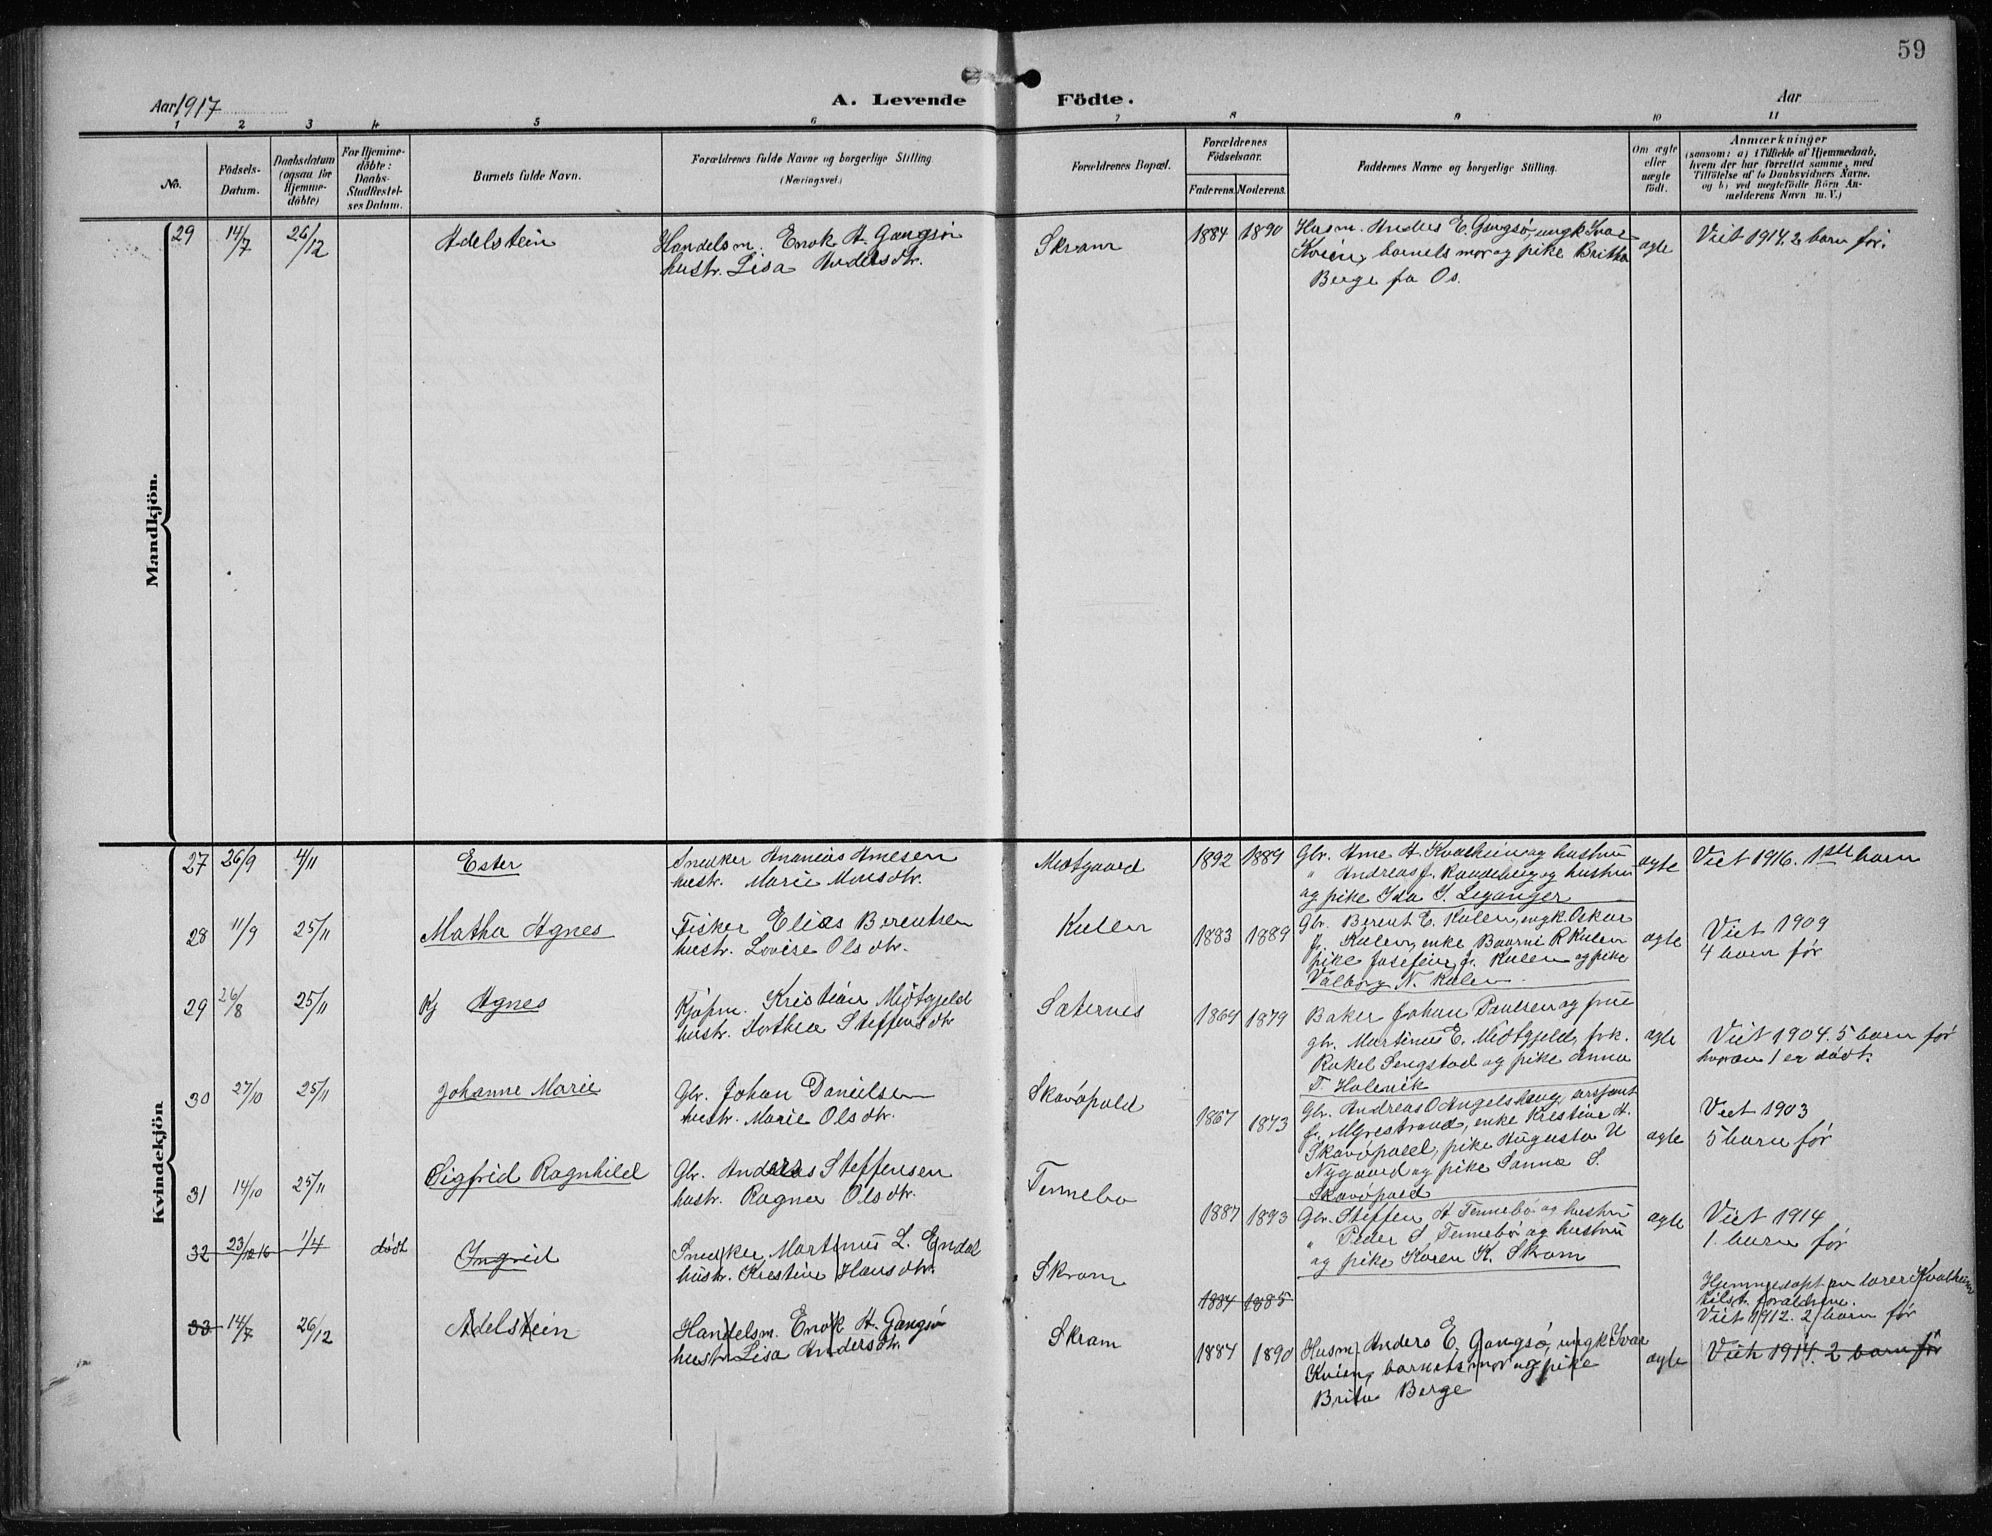 59
Aar 1917 A. Levende Födte. Aar
1 2 3 4 5 6 7 8 9 10 11
No. Födsels-Datum. Daabsdatum (ogsaa for Hjemme-döbte) For Hjemme-döbte: Daabs-Stadfæstel-ses Datum. Barnets fulde Navn. Forældrenes fulde Navne og borgerlige Stilling (Næringsvei.) Forældrenes Bopæl. Forældrenes Födselsaar. Faderens. Moderens. Faddernes Navne og borgerlige Stilling. Om ægte eller uægte födt. Anmærkninger (saasom: a) i Tilfælde af Hjemmedaab, hvem der har forrettet samme, med Tilföielse af to Daabsvidners Navne. og b) ved uægtefödte Börn An-melderens Navn m. V.)
Mandkjön.
29 14/7 26/12 Adelstein Handelsm. Enok A. Gangsø Skram 1884 1890 Husm. Anders E. Gangsø, ungk Ivar ægte Viet 1914. 2 barn før.
hustr. Lisa Andersdtr. Kvien, barnets mor og pike Britha
Berge fra Os.
Kvindekjön
27 26/9 4/11 Ester Snedker Ananias Arnesen Midtgaard 1892 1889 Gbr. Arne A. Kvalheim og hustru ægte Viet 1916. 1ste barn
hustr. Marie Monsdtr. " Andreas J. Raudeberg og hustru
og pike Ida S. Leganger
28 11/9 25/11 Matha Agnes Fisker Elias Berentsen Kulen 1883 1889 Gbr. Berent E. Kulen, ungk. Oskar ægte Viet 1909
hustr. Lovise Olsdtr. J. Kulen, enke Baarni R Kulen 4 barn før
pike Josefine J. Kulen og pike
Valborg N. Kulen
29 26/8 25/11 Kj Agnes Kjøpm. Kristian Midtgjeld Sæternes 1869 1879 Baker Johan Paulsen og frue ægte Viet 1904. 5 barn før
hustr. Dorthea Steffensdtr gbr. Martinus E. Midtgjeld, frk. hvorav 1 er dødt.
Rakel Sengstad og pike Anna
T. Halsvik
30 27/10 25/11 Johanne Marie Gbr. Johan Danielsen Skavøpold 1867 1873 Gbr. Andreas O Angelshaug, sersjant ægte Viet 1903
hustr. Marie Olsdtr. J. Myrestrand, enke Kristine A. 5 barn før
Skavøpold, pike Augusta N
Nygaard og pike Sanna S.
Skavøpold
31 14/10 25/11 Sigfrid Ragnhild Gbr. Anders Steffensen Tennebø 1887 1893 Gbr. Steffen A Tennebø og hustru ægte Viet 1914
hustr. Ragna Olsdtr. " Peder S. Tennebø og hustru 1. barn før
og pike Karen K. Skram
32 23/12 16 1/4 dødt Ingrid Snedker Martinus L. Endal Skram 1884 1885 Hjemmedøpt av lærer Kvalheim
hustr. Kristine Hansdtr. tilst. forældrene.
Viet 1912. 2 barn før
33 14/7 26/12 Adelstein Handelsm. Enok A. Gangsø Skram 1884 1890 Husm. Anders E. Gangsø, ungk. Ivar ægte Viet 1914. 2 barn før
hustr. Lisa Andersdtr. Kvien, barnets mor og pike
Brita Berge